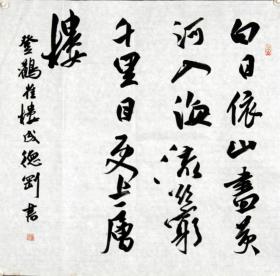 白日依山盡黄
河入海流欲窮
千里目更上一層
樓
登鸛雀樓成德剛書